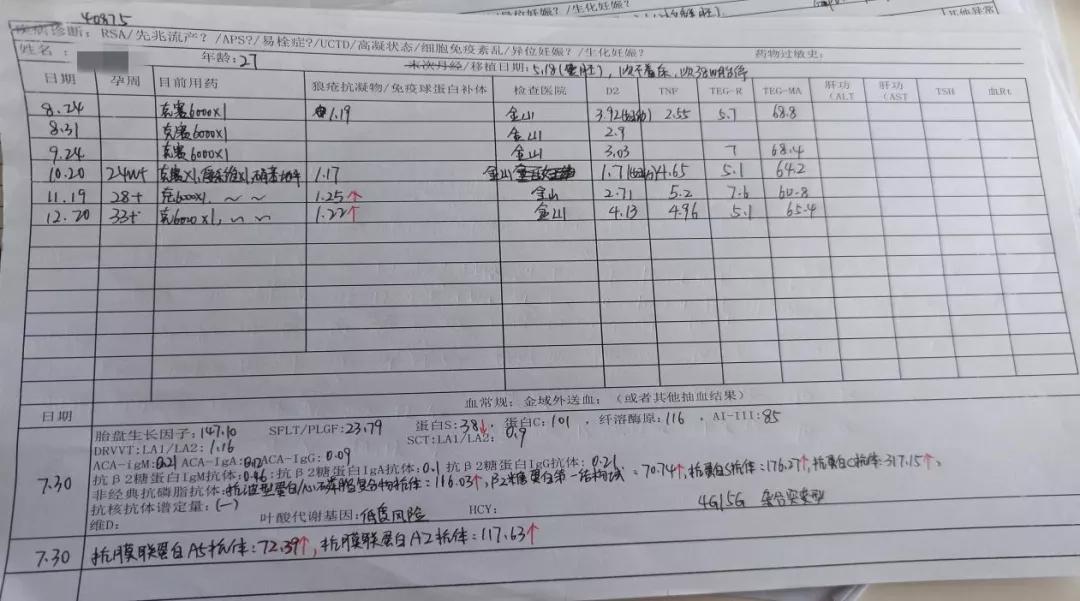 40875
疾病诊断：RSA/先兆流产？/APS?/易栓症?/UCTD/高凝状态/细胞免疫紊乱/异位妊娠？/生化妊娠？
姓名： 年龄:27 末次月经/移植日期: 5.18 药物过敏史：
日期 孕周 目前用药 狼疮抗凝物/免疫球蛋白补体 检查医院 D2 TNF TEG-R TEG-MA 肝功（ALT 肝功（AST TSH 血Rt
8.24 克赛6000x1 1.19 金山 3.92 2.55 5.7 68.8
8.31 克赛6000x1 金山 2.9
9.24 克赛6000x1 金山 3.03 7 68.4
10.20 24w+ 克赛x1, 1.17 金山 1.71 4.65 5.1 64.2
11.19 28+ 克6000x1, ~ ~ 1.25↑ 金山 2.71 5.2 7.6 60.8
12.20 33+ 克6000x1, ~ ~ 1.22↑ 金山 4.13 4.96 5.1 65.4
日期 血常规：金域外送血：（或者其他抽血结果）
7.30
胎盘生长因子: 147.10 SFLT/PLGF: 23.79 蛋白S: 38↓ 蛋白C: 101 纤溶酶原: 116 AI-III: 85
DRVVT: LA1/LA2: 1.16 SCT:LA1/LA2: 0.9
ACA-igM: 0.21 ACA-IgA: 0.12 ACA-IgG: 0.09
抗β2糖蛋白IgM抗体: 0.06 抗β2糖蛋白IgA抗体: 0.1 抗β2糖蛋白IgG抗体: 0.21
非经典抗磷脂抗体: 抗波型蛋白/心磷脂复合物抗体: 116.03↑, β2糖蛋白第一结构域: 70.74↑, 抗蛋白S抗体: 176.27↑, 抗蛋白C抗体: 317.15↑,
抗核抗体谱定量: (一) 4G/5G 杂合突变型
维D: 叶酸代谢基因: 低度风险 HCY:
7.30 抗膜联蛋白A5抗体: 72.39↑, 抗膜联蛋白A2抗体: 117.63↑